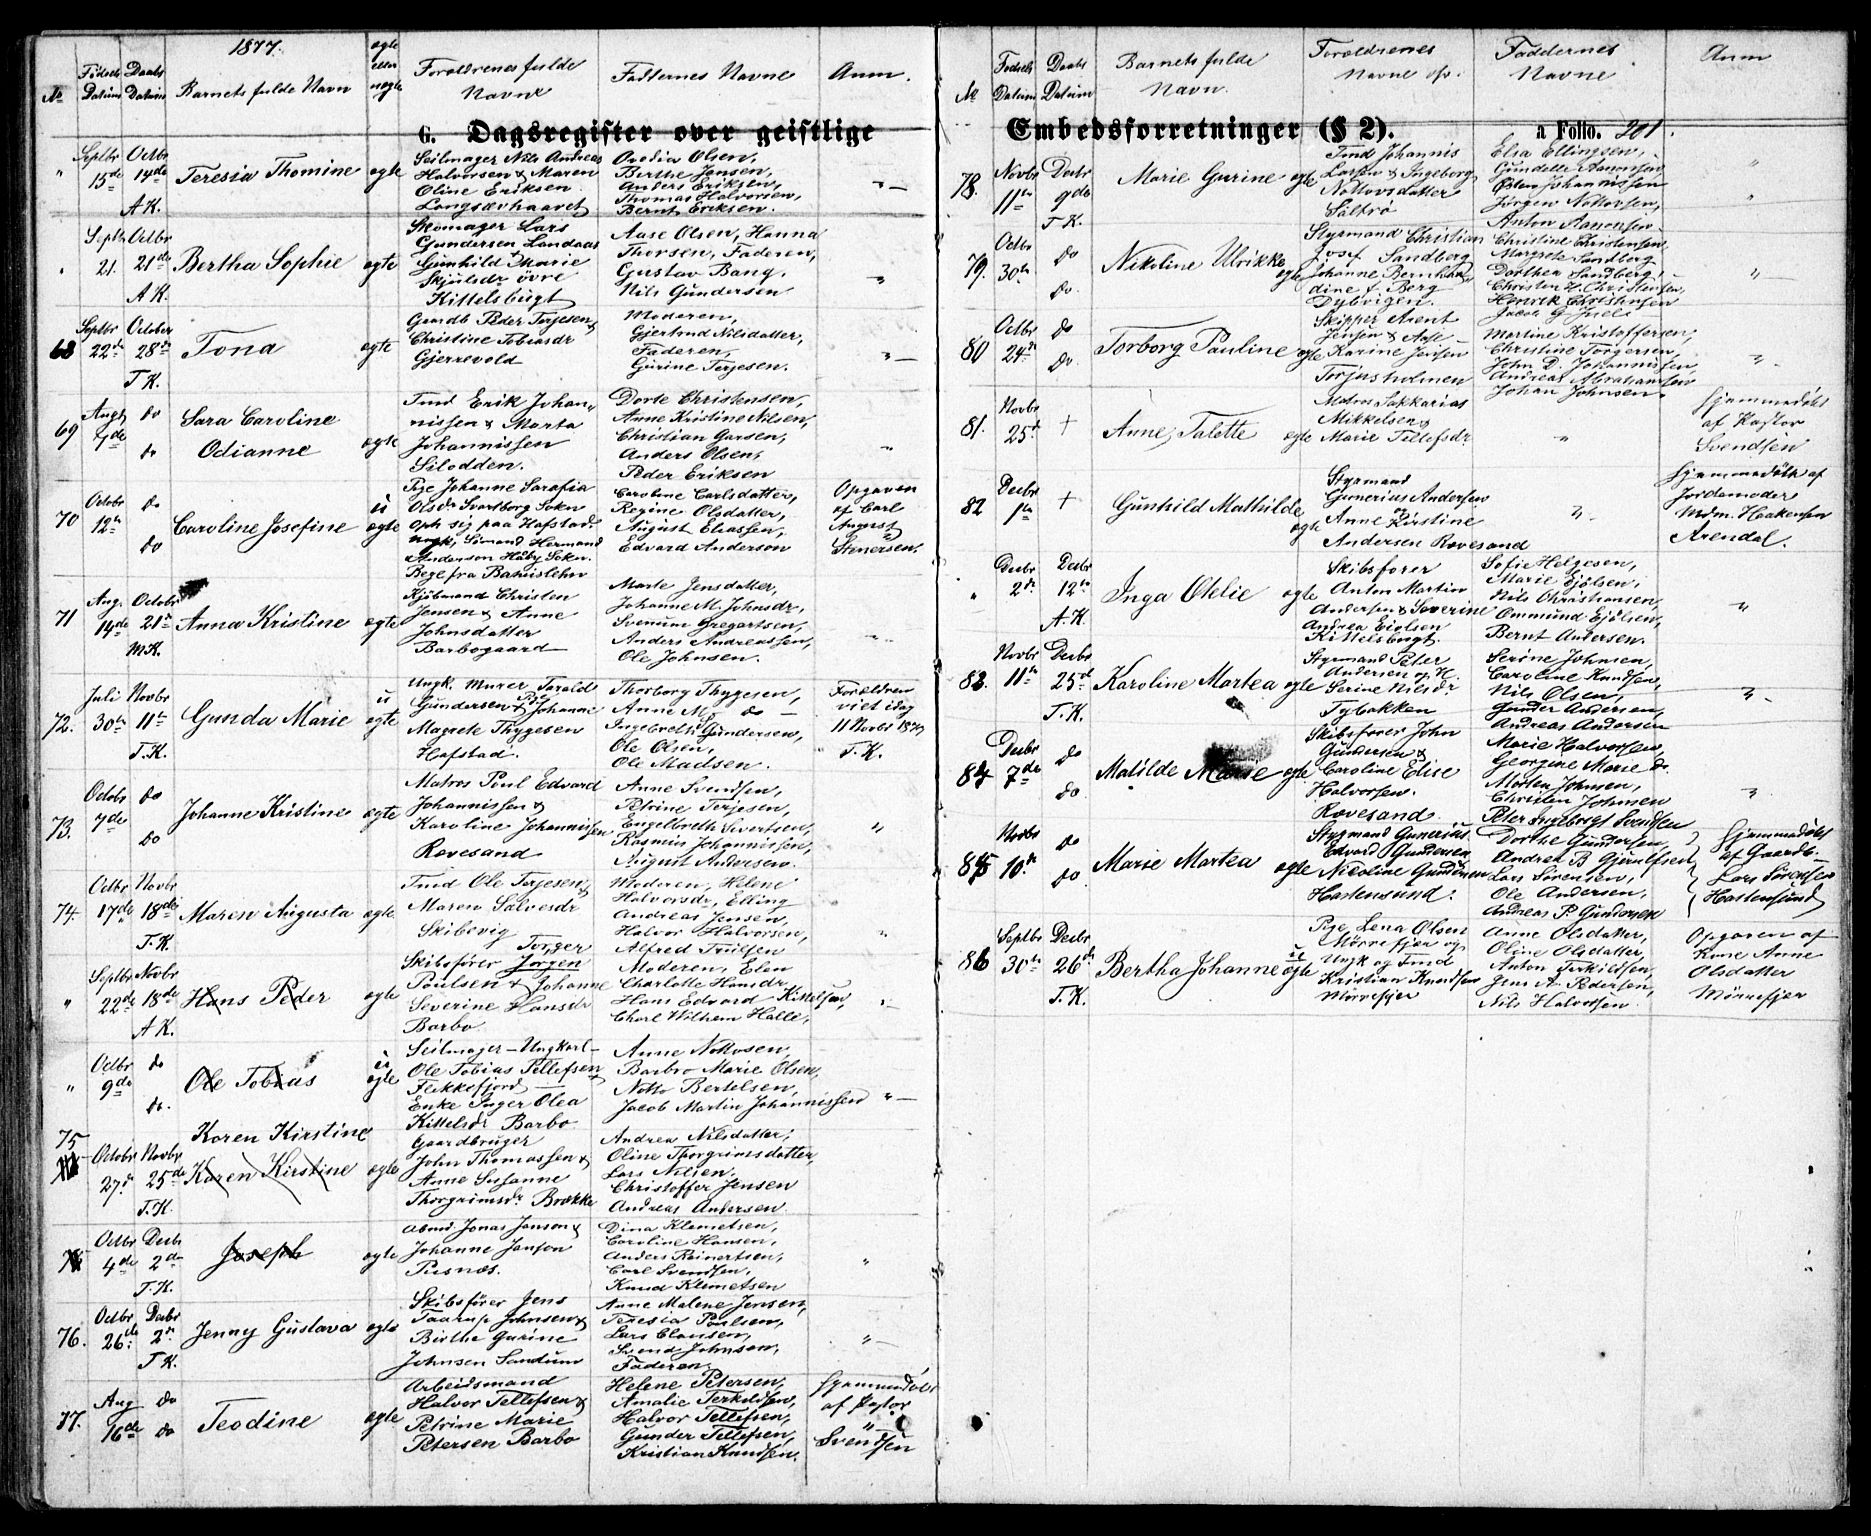 1877.
No
Fødsels Datum
Daabs Datum
Barnets fulde Navn
ægte eller uægte
Forældrenes fulde Navne
Faddernes Navne
Anm.
G. Dagsregister over geistlige
"
Septbr 15de
Octbr 14de
A K.
Teresia Thomine
ægte
Seilmager Nils Andreas
Halvorsen & Maren
Oline Eriksen
Langsævhaavet
Berthe Jensen,
Anders Eriksen,
Thomas Halvorsen,
Bernt Eriksen.
"
Septbr 21.
Octbr 21de
A K.
Bertha Sophie
ægte
Skomager Lars
Gundersen Landaas
& Gunhild Marie
Skjulsdr øvre
Kittelsbugt
Aase Olsen, Hanna
Thorsen, Faderen,
Gustav Bang,
Nils Gundersen
"
68
Septbr 22de
October 28de
T K.
Tona
ægte
Gaardb Peder Terjesen &
Christine Tobiasdr
Gjerrevold
Moderen,
Gjertrud Nilsdatter,
Faderen,
Gurine Terjesen.
"
69
Augt 7de
do
do
Sara Caroline
Odianne
ægte
Tmd Erik Johan-
nissen & Marta
Johannissen
Silodden.
Dorte Christensen,
Anne Kristine Nilsen,
Christian Garsen,
Anders Olsen,
Peder Eriksen
"
70
Octobr 12te
do
do
Caroline Josefine
u
ægte
Pige Johanne Sarafia
Olsdr Svartborg Sokn
oph sig paa Hafstad
Ungk. Sömand Hermand
Anderson Håby Sokn
Bege fra Bahuslehn
Caroline Carlsdatter,
Regine Olsdatter,
August Eliassen,
Edvard Anderson
Opgaven
af Carl
August
Stenersen.
71
Aug. 14de
Octobr 21de
M K.
Anna Kristine
ægte
Kjöbmand Christen
Jensen & Anne
Johnsdatter
Barbogaard
Marte Jensdatter,
Johanne M. Johnsdr,
Svenum Gregartsen,
Anders Andreassen,
Ole Johnsen.
"
72.
Juli 30te
Novbr 11te
T. K.
Gunda Marie
u
ægte
Ungk. Murer Torald
Gundersen & Pige Johanne
Magrete Thygesen
Hafstad
Thorborg Thygesen,
Anne M. do
Ingebreth Gundersen,
Ole Olsen,
Ole Madsen.
Forældren
viet idag
11 Novbr 1877
T. K.
73.
Octobr 7de
do
do
Johanne Kristine
ægte
Matros Poul Edvard
Johannissen &
Karoline Johannissen
Rævesand
Anne Svendsen,
Petrine Terjesen,
Engelbreth Sivertsen,
Rasmus Johannissen,
August Andersen.
"
74.
Octbr 17de
Novbr 18de
T. K.
Maren Augusta
ægte
Tmd Ole Terjesen &
Maren Salvesdr
Skibevig
Moderen, Helene
Halvorsdr, Elling
Andreas Jensen,
Halvor Halvorsen,
Alfred Truelsen
"
"
Septbr 22de
Novbr 18de
A K.
Hans Peder
ægte
Torger
Skibsfører Jørgen
Poulsen & Johanne
Severine Hansdr
Barbo
Moderen, Elen
Charlotte Hansdr,
Hans Edvard Kittelsen,
Charl Wilhem Halle,
"
"
Octbr 9de
do
do.
Ole Tobias
u
ægte
Seilmager - Ungkarl -
Ole Tobias Tellefsen
Flekkefjord &
Enke Inger Olea
Kittelsdr Barbo
Anne Nottosen,
Barbro Marie Olsen,
Notto Bertelsen,
Jacob Martin Johannissen
"
75
Octobr 27de
Novbr 25de
T. K.
Karen Kirstine
Karen Kirstine
ægte
Gaardbruger
John Thomassen &
Anne Susanne
Thorgrimsdr Brække
Andrea Nilsdatter,
Oline Thorgrimsdatter,
Lars Nilsen.
Christoffer Jensen
Andreas Andersen
Octbr 4de
Decbr 2de
T. K.
Joseph
ægte
Jonas Janson &
Johanne Janson
Pusnæs.
Dina Klemetsen,
Caroline Hansen,
Anders Reinertsen,
Carl Svendsen,
Knud Klemetsen
"
76.
Octbr 26de
Decbr 2de
T K.
Jenny Gustava
ægte
Skibsfører Jens
Taarup Johnsen &
Birthe Gurine
Johnsen Sandum
Anne Malene Jensen,
Teresia Poulsen,
Lars Clausen,
Svend Johnsen,
Faderen.
"
77.
Aug 16de
do
do
Teodine
ægte
Arbeidsmand
Halvor Tellefsen &
Petrine Marie
Petersen Barbo
Helene Petersen,
Amalie Terkildsen,
Halvor Tellefsen,
Gunder Tellefsen,
Kristian Knudsen.
Hjemmedöbt
af Pastor
"
Svendsen
No
Fødsels Datum
Daabs Datum
Barnets fulde Navn.
Forældrenes Navne osv.
Faddernes Navne
Anm
Embedsforretninger (§ 2).
a Folio. 201.
78.
Novbr 11te
Decbr 9de
T K.
Marie Gurine
ægte
Tmd Johannis
Larsen & Ingeborg
Nottovsdatter
Saltrö
Elsa Ellingsen,
Gundelle Aanonsen,
Østen Johannissen
Jørgen Nottovsen,
Anton Aanonsen.
"
79.
Octbr 30te
do
do.
Nikoline Ulrikke
ægte
Styrmand Christian
Josef Sandberg
Johanne Bernhar-
dine f. Berg
Dybvigen.
Christine Christensen,
Margrete Sandberg
Dorthea Sandberg,
Christen H. Christensen,
Henrik Christensen
"
80
Octbr 24de
do
do.
Torborg Pauline
ægte
Skipper Arent
Jensen & Aase
Karine Jensen
Torjusholmen
Martine Kristoffersen,
Christine Torgersen,
John D. Johannissen,
Andreas Abrahamsen
Johan Johnsen.
"
81.
Novbr 25de
+
Anne Talette
ægte
Matros Sakkarias
Mikkelsen &
Marie Tellefsdr
"
Hjemmedöbt
af Pastor
Svendsen
82
Decbr 1te
+
Gunhild Mathilde
ægte
Styrmand
Gunerius Andersen
og
Anne Kirstine
Andersen Rævesand
"
Hjemmedöbt af
Jordemoder
Mdm. Haakensen
Arendal.
"
Decbr 2de
Decbr 12te
A. K.
Inga Otelie
ægte
Skibsfører
Anton Martin
Andersen & Severine
Andrea Eiolsen
Kittelsbugt.
Sofie Helgesen,
Marie Ejølsen,
Nils Christiansen,
Ommund Ejølsen,
Bernt Andersen.
"
83.
Novbr 11te
Decbr 25de
T. K.
Karoline Martea
ægte
Styrmand Peter
Andersen og H.
Serine Nilsdr
Tybakken
Serine Johnsen,
Caroline Knudsen,
Nils Olsen,
Gunder Andersen,
Andreas Andersen
"
84
Decbr 7de
do
do
Matilde Marie
ægte
Skibsfører John
Gundersen &
Caroline Elise
Halvorsen.
Rævesand.
Marie Halvorsen,
Georgine Marie do.
Morten Johnsen,
Christen Johnsen
Peter Ingeborgt Svendsen
"
85
Novbr 10de
do
do
Marie Martea
ægte
Styrmand Gunerius
Edvard Gundersen
Nicoline Gundersen
Hastensund.
Dorthe Gundersen,
Andrea B Gjerulfsen
Lars Sørensen,
Ole Andersen,
Andreas P. Gundersen
Hjemmedöbt
af Gaardb.
Lars Sørensen
Hastensund
86
Septbr 30te
Decbr 26de
T. K.
Bertha Johanne
u
ægte
Pige Lena Olsen
Mørrefjær og
Ungk og Tmd
Kristian Knudsen
Mørrefjær
Anne Olsdatter,
Oline Olsdatter,
Anton Terkildsen,
Jens A. Pedersen,
Nils Halvorsen
Opgaven af
Kone Anne
Olsdatter
Mørrefjær